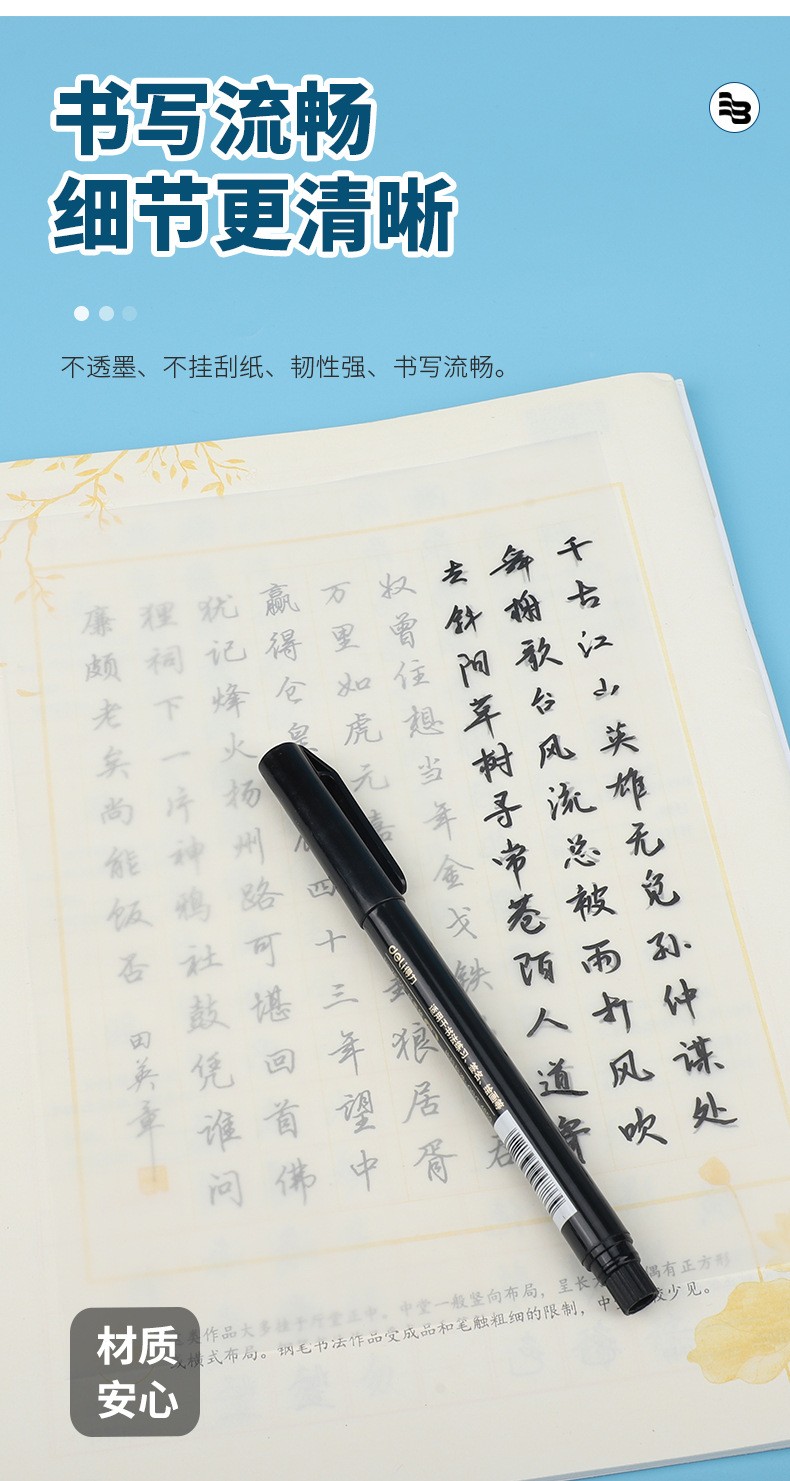 书写流畅
细节更清晰
不透墨、不挂刮纸、韧性强、书写流畅。
千古江山英雄无觅孙仲谋处
舞榭歌台风流总被雨打风吹
去斜阳草树寻常巷陌人道寄
奴曾住想当年金戈铁
万里如虎元嘉封狼居胥
赢得仓皇四十三年望中
犹记烽火扬州路可堪回首佛
狸祠下一片神鸦社鼓凭谁问
廉颇老矣尚能饭否
田英章
deli得力
适用于书法练习、签名、绘画等
作品大多挂于厅堂正中。中堂一般竖向布局，呈长 偶有正方形
横式布局。钢笔书法作品受成品和笔触粗细的限制，中 较少见。
材质
安心